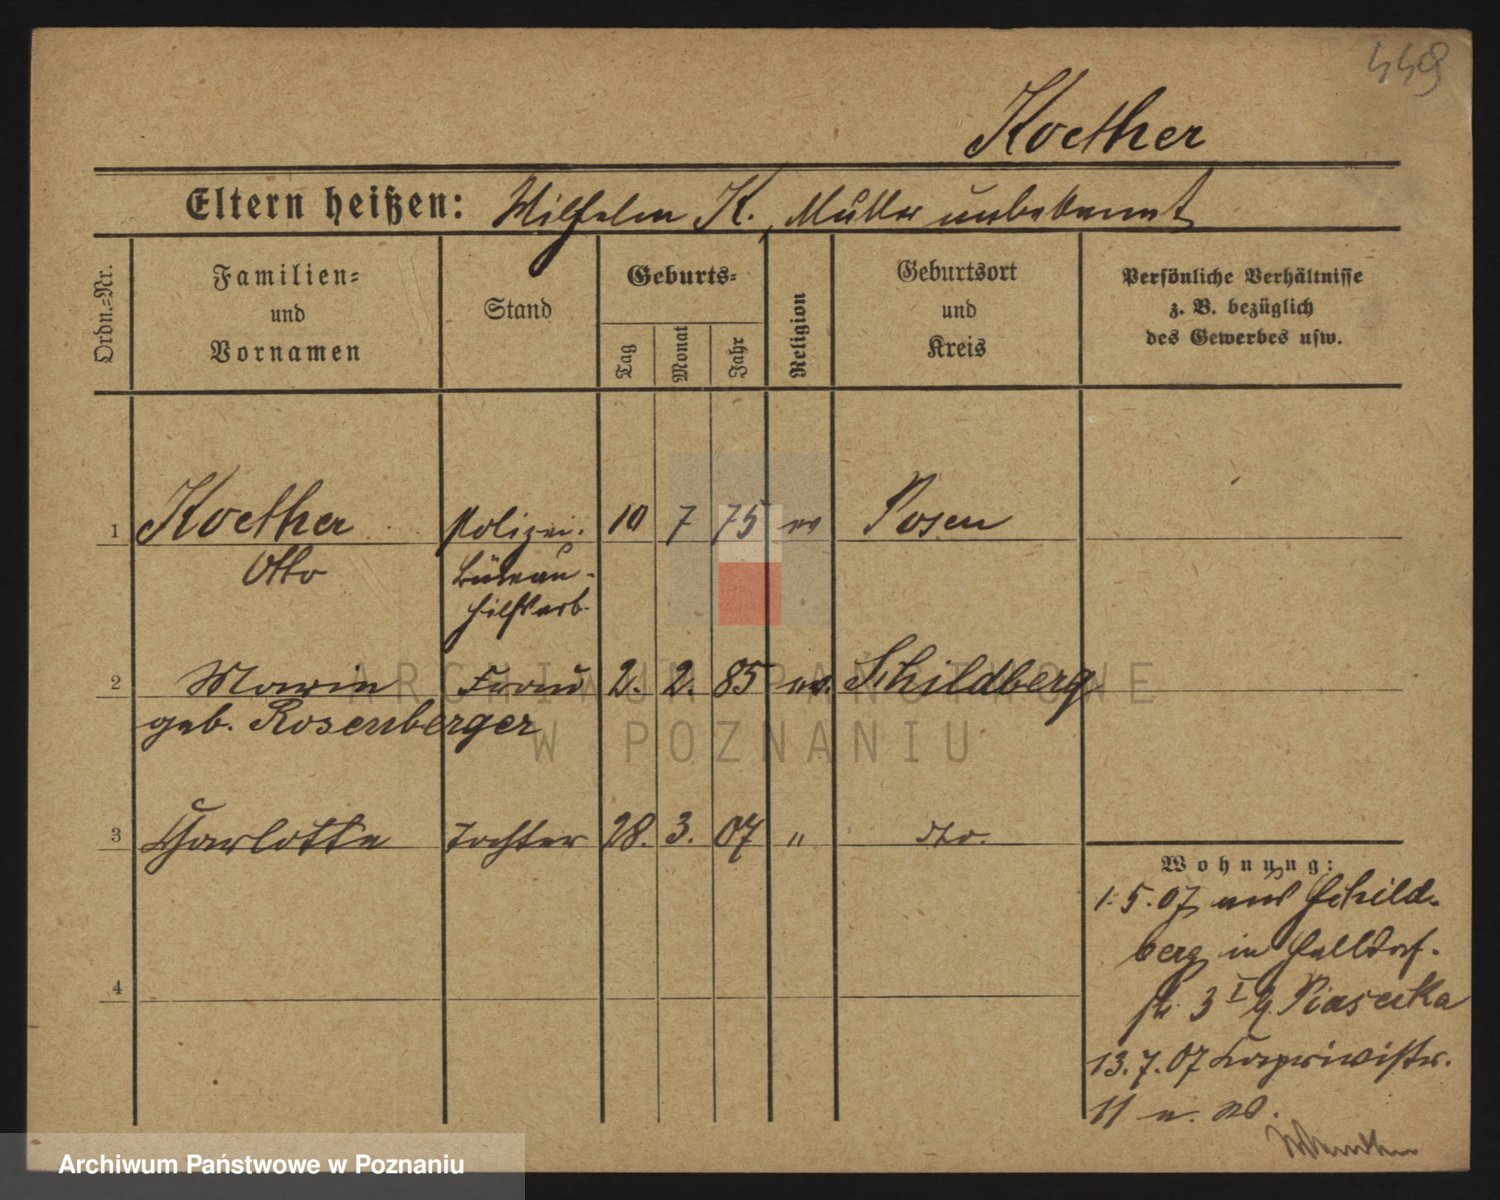 449
Koether
Eltern heißen: Wilhelm K., Mutter unbekannt
Ordn.-Nr.
Familien-
und
Vornamen
Stand
Geburts-
Tag
Monat
Jahr
Religion
Geburtsort
und
Kreis
Persönliche Verhältnisse
z. B. bezüglich
des Gewerbes usw.
1 Koether Polizei- 10 7 75 ev Posen
Otto Büreau-
hilfsarb.
2 Marie Frau 2. 2. 85 ev. Schildberg
geb. Rosenberger
3 Charlotte Tochter 28. 3. 07 " dto.
4
Wohnung:
1.5.07 aus Schild-
berg in
str. 3 I b. Piasecka
13.7.07 Caprivistr.
11
ARCHIWUM PAŃSTWOWE
W POZNANIU
Archiwum Państwowe w Poznaniu